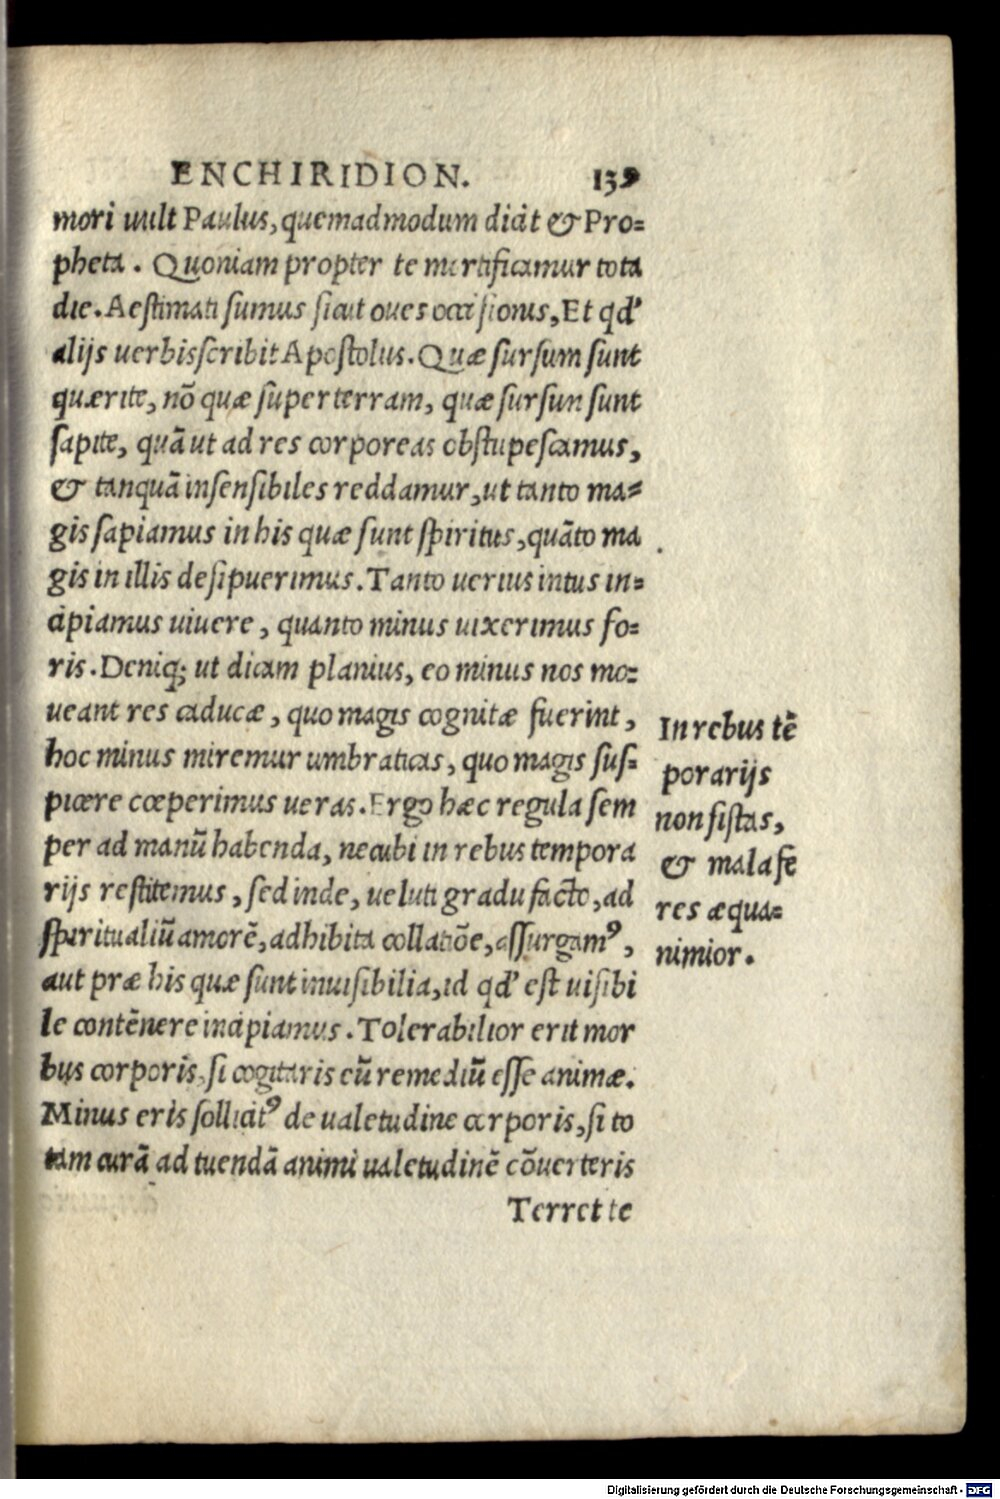 ENCHIRIDION. 139
mori uult Paulus, quemadmodum dicit & Pro-
pheta. Quoniam propter te mortificamur tota
die. Aestimati sumus sicut oues occisionis, Et qd'
alijs uerbis scribit Apostolus. Quæ sursum sunt
quærite, nõ quæ super terram, quæ sursun sunt
sapite, quã ut ad res corporeas obstupescamus,
& tanquã insensibiles reddamur, ut tanto ma-
gis sapiamus in his quæ sunt spiritus, quãto ma
gis in illis desipuerimus. Tanto uerius intus in-
cipiamus uiuere, quanto minus uixerimus fo-
ris. Deniq; ut dicam planius, eo minus nos mo-
ueant res caducæ, quo magis cognitæ fuerint,
hoc minus miremur umbraticas, quo magis sus-
picere cœperimus ueras. Ergo hæc regula sem
per ad manũ habenda, necubi in rebus tempora
rijs restitemus, sed inde, ueluti gradu facto, ad
spiritualiũ amorẽ, adhibita collatiõe, assurgamꝰ,
aut præ his quæ sunt inuisibilia, id qd' est uisibi
le contẽnere incipiamus. Tolerabilior erit mor
bus corporis, si cogitaris eũ remediũ esse animæ.
Minus eris sollicitꝰ de ualetudine corporis, si to
tam curã ad tuendã animi ualetudinẽ cõuerteris
Terret te
In rebus tẽ
porarijs
non sistas,
& mala fe
res æqua-
nimior.
Digitalisierung gefördert durch die Deutsche Forschungsgemeinschaft - DFG